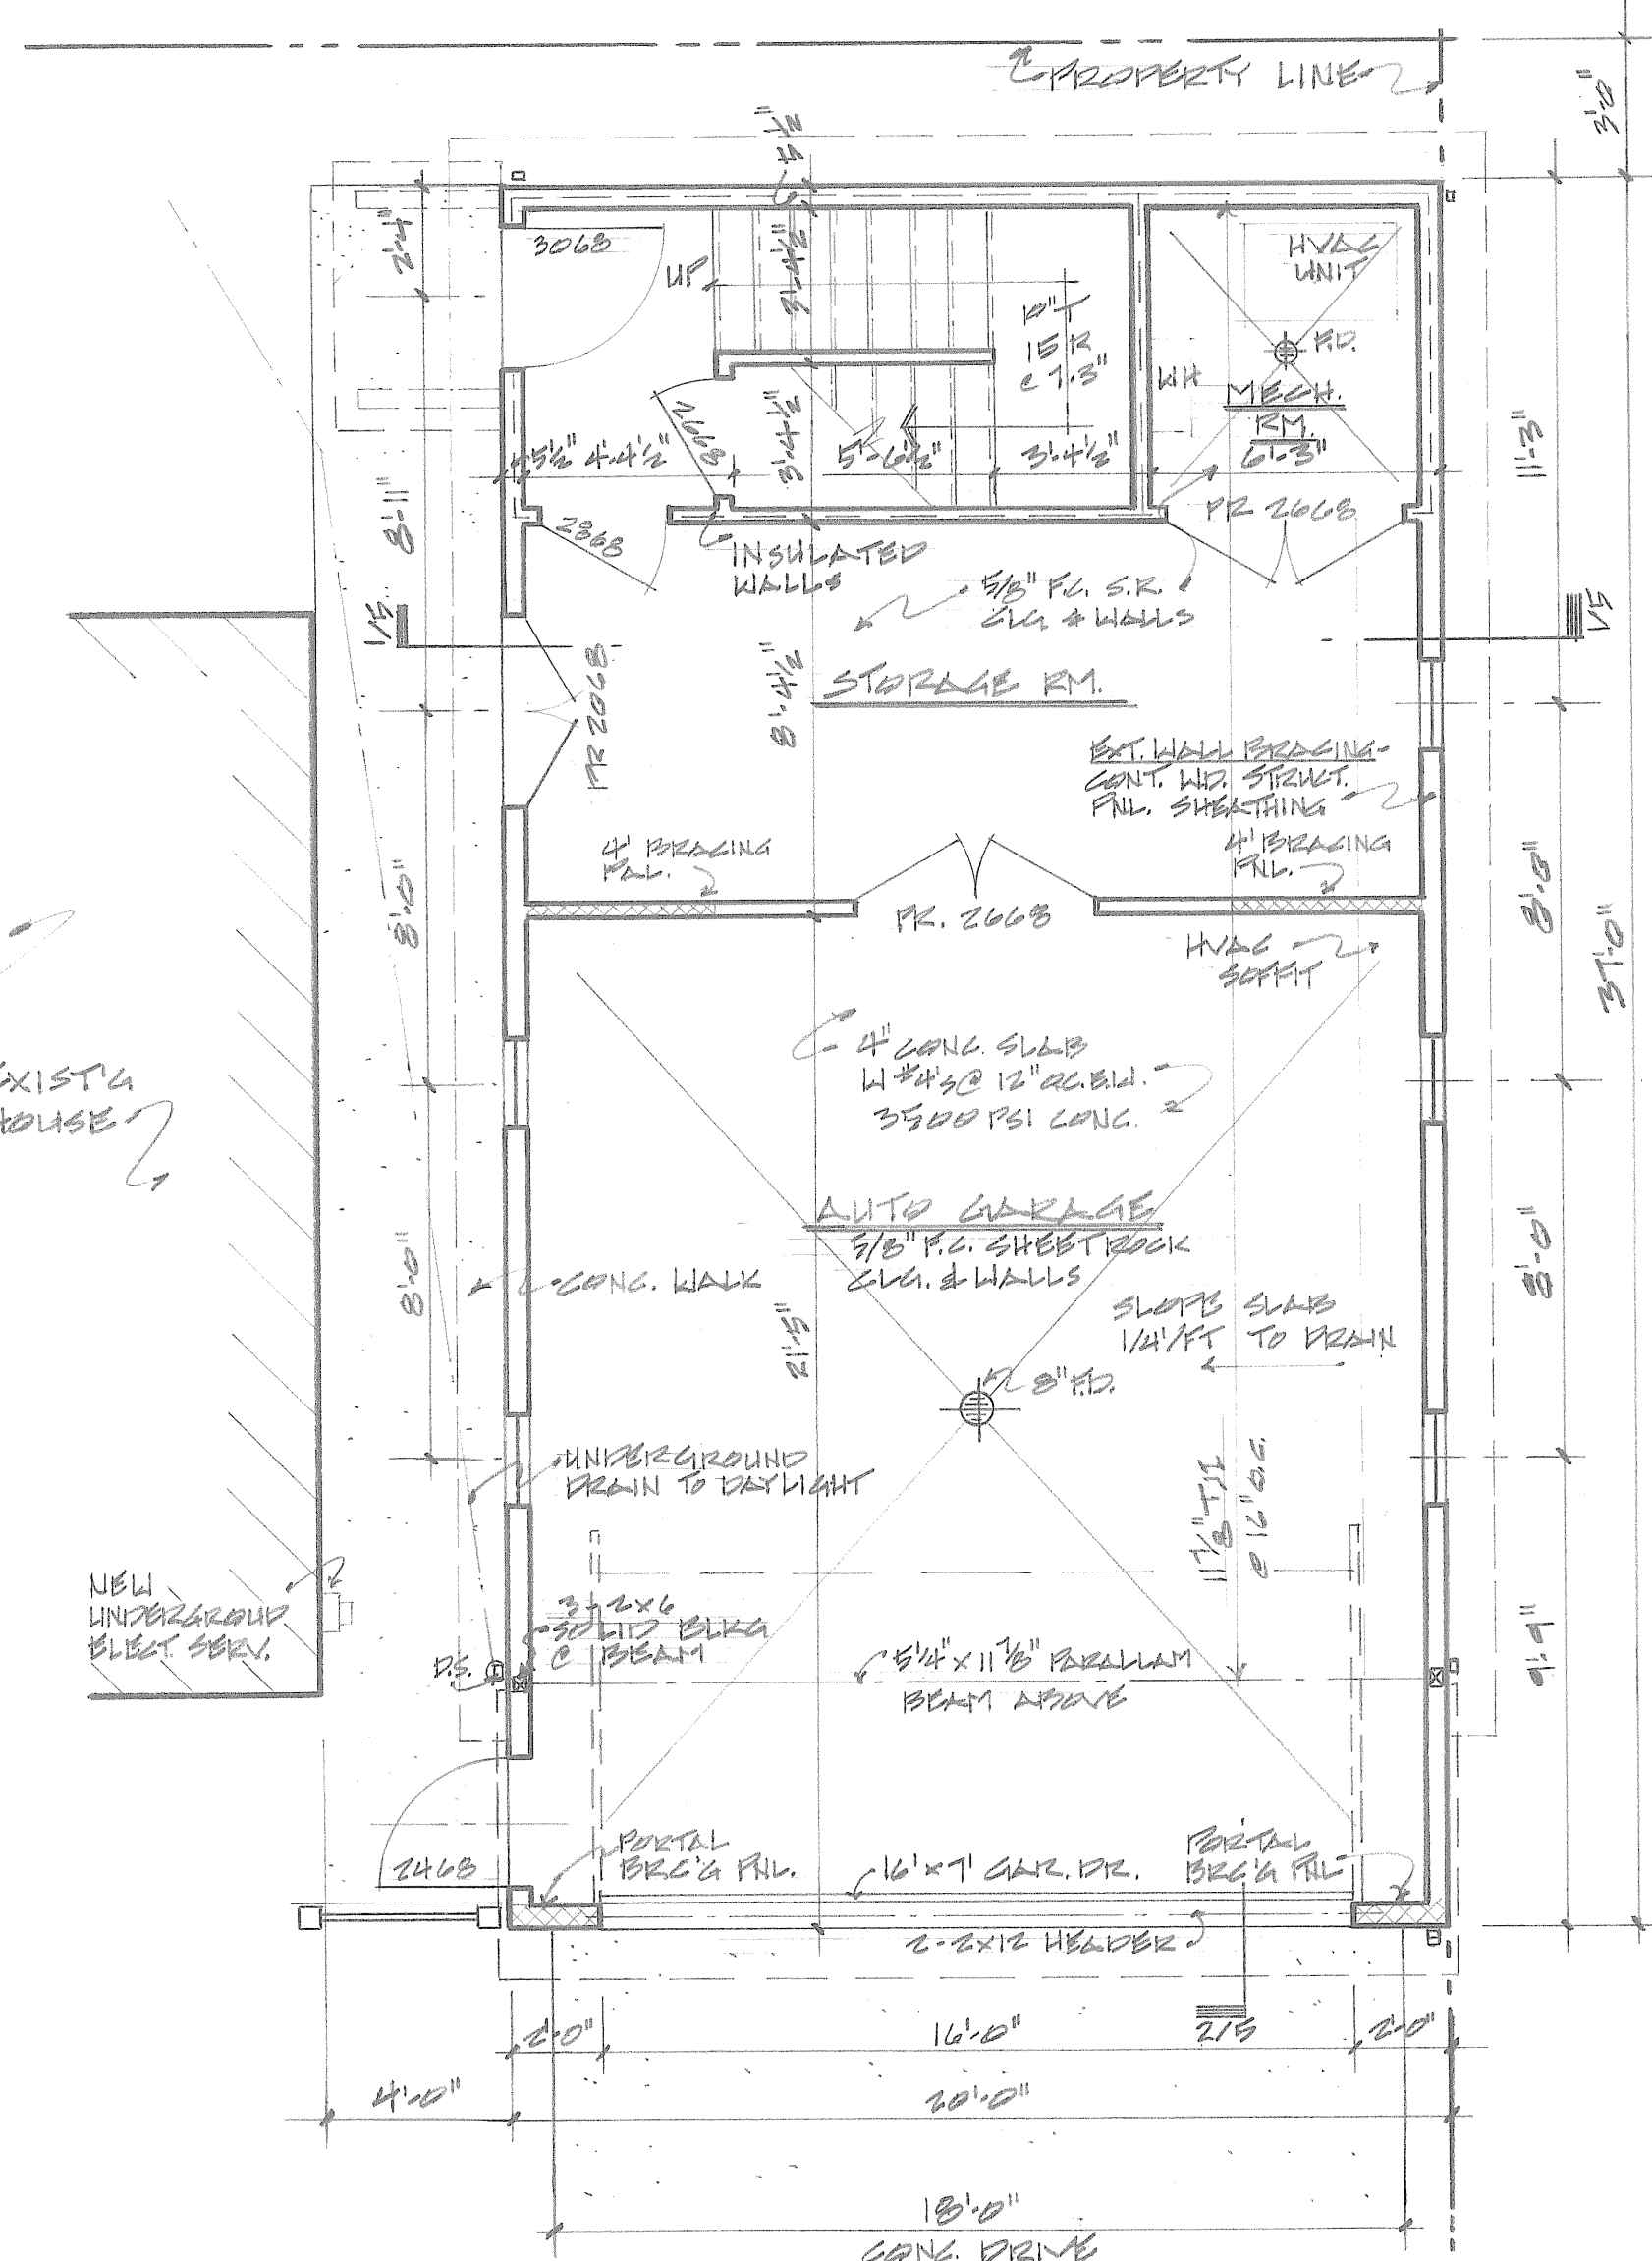 PROPERTY LINE
3'-0"
5½"
2'-4"
3068
UP
3'-4½"
HVAC
UNIT
10" T
15 R
@ 7.3"
F.D.
WH
MECH.
RM.
2668
3'-4½"
5½"
4'-4½"
5'-6½"
3'-4½"
6'-3"
11'-3"
8'-11"
PR 2668
2868
INSULATED
WALLS
5/8" F.C. S.R.
CLG. & WALLS
1/5
1/5
PR 2068
8'-4½"
STORAGE RM.
EXT. WALL BRACING-
CONT. WD. STRUCT.
PNL. SHEATHING
4' BRACING
PNL.
4' BRACING
PNL.
8'-0"
8'-0"
PR. 2668
HVAC
SOFFIT
37'-0"
4" CONC. SLAB
W #4's @ 12" OC.E.W.
3500 PSI CONC.
EXIST'G
HOUSE
AUTO GARAGE
5/8" F.C. SHEETROCK
CLG. & WALLS
CONC. WALK
8'-0"
8'-0"
21'-5"
SLOPE SLAB
1/4"/FT TO DRAIN
8" F.D.
UNDERGROUND
DRAIN TO DAYLIGHT
11 7/8" TJI
@ 16" O.C.
NEW
UNDERGROUND
ELECT. SERV.
3-2x6
SOLID BLKG
@ BEAM
D.S.
5¼" x 11 7/8" PARALLAM
BEAM ABOVE
9'-9"
2468
PORTAL
BRC'G PNL.
16' x 7' GAR. DR.
PORTAL
BRC'G PNL
2-2x12 HEADER
2/5
2'-0"
16'-0"
2'-0"
4'-0"
20'-0"
18'-0"
CONC. DRIVE